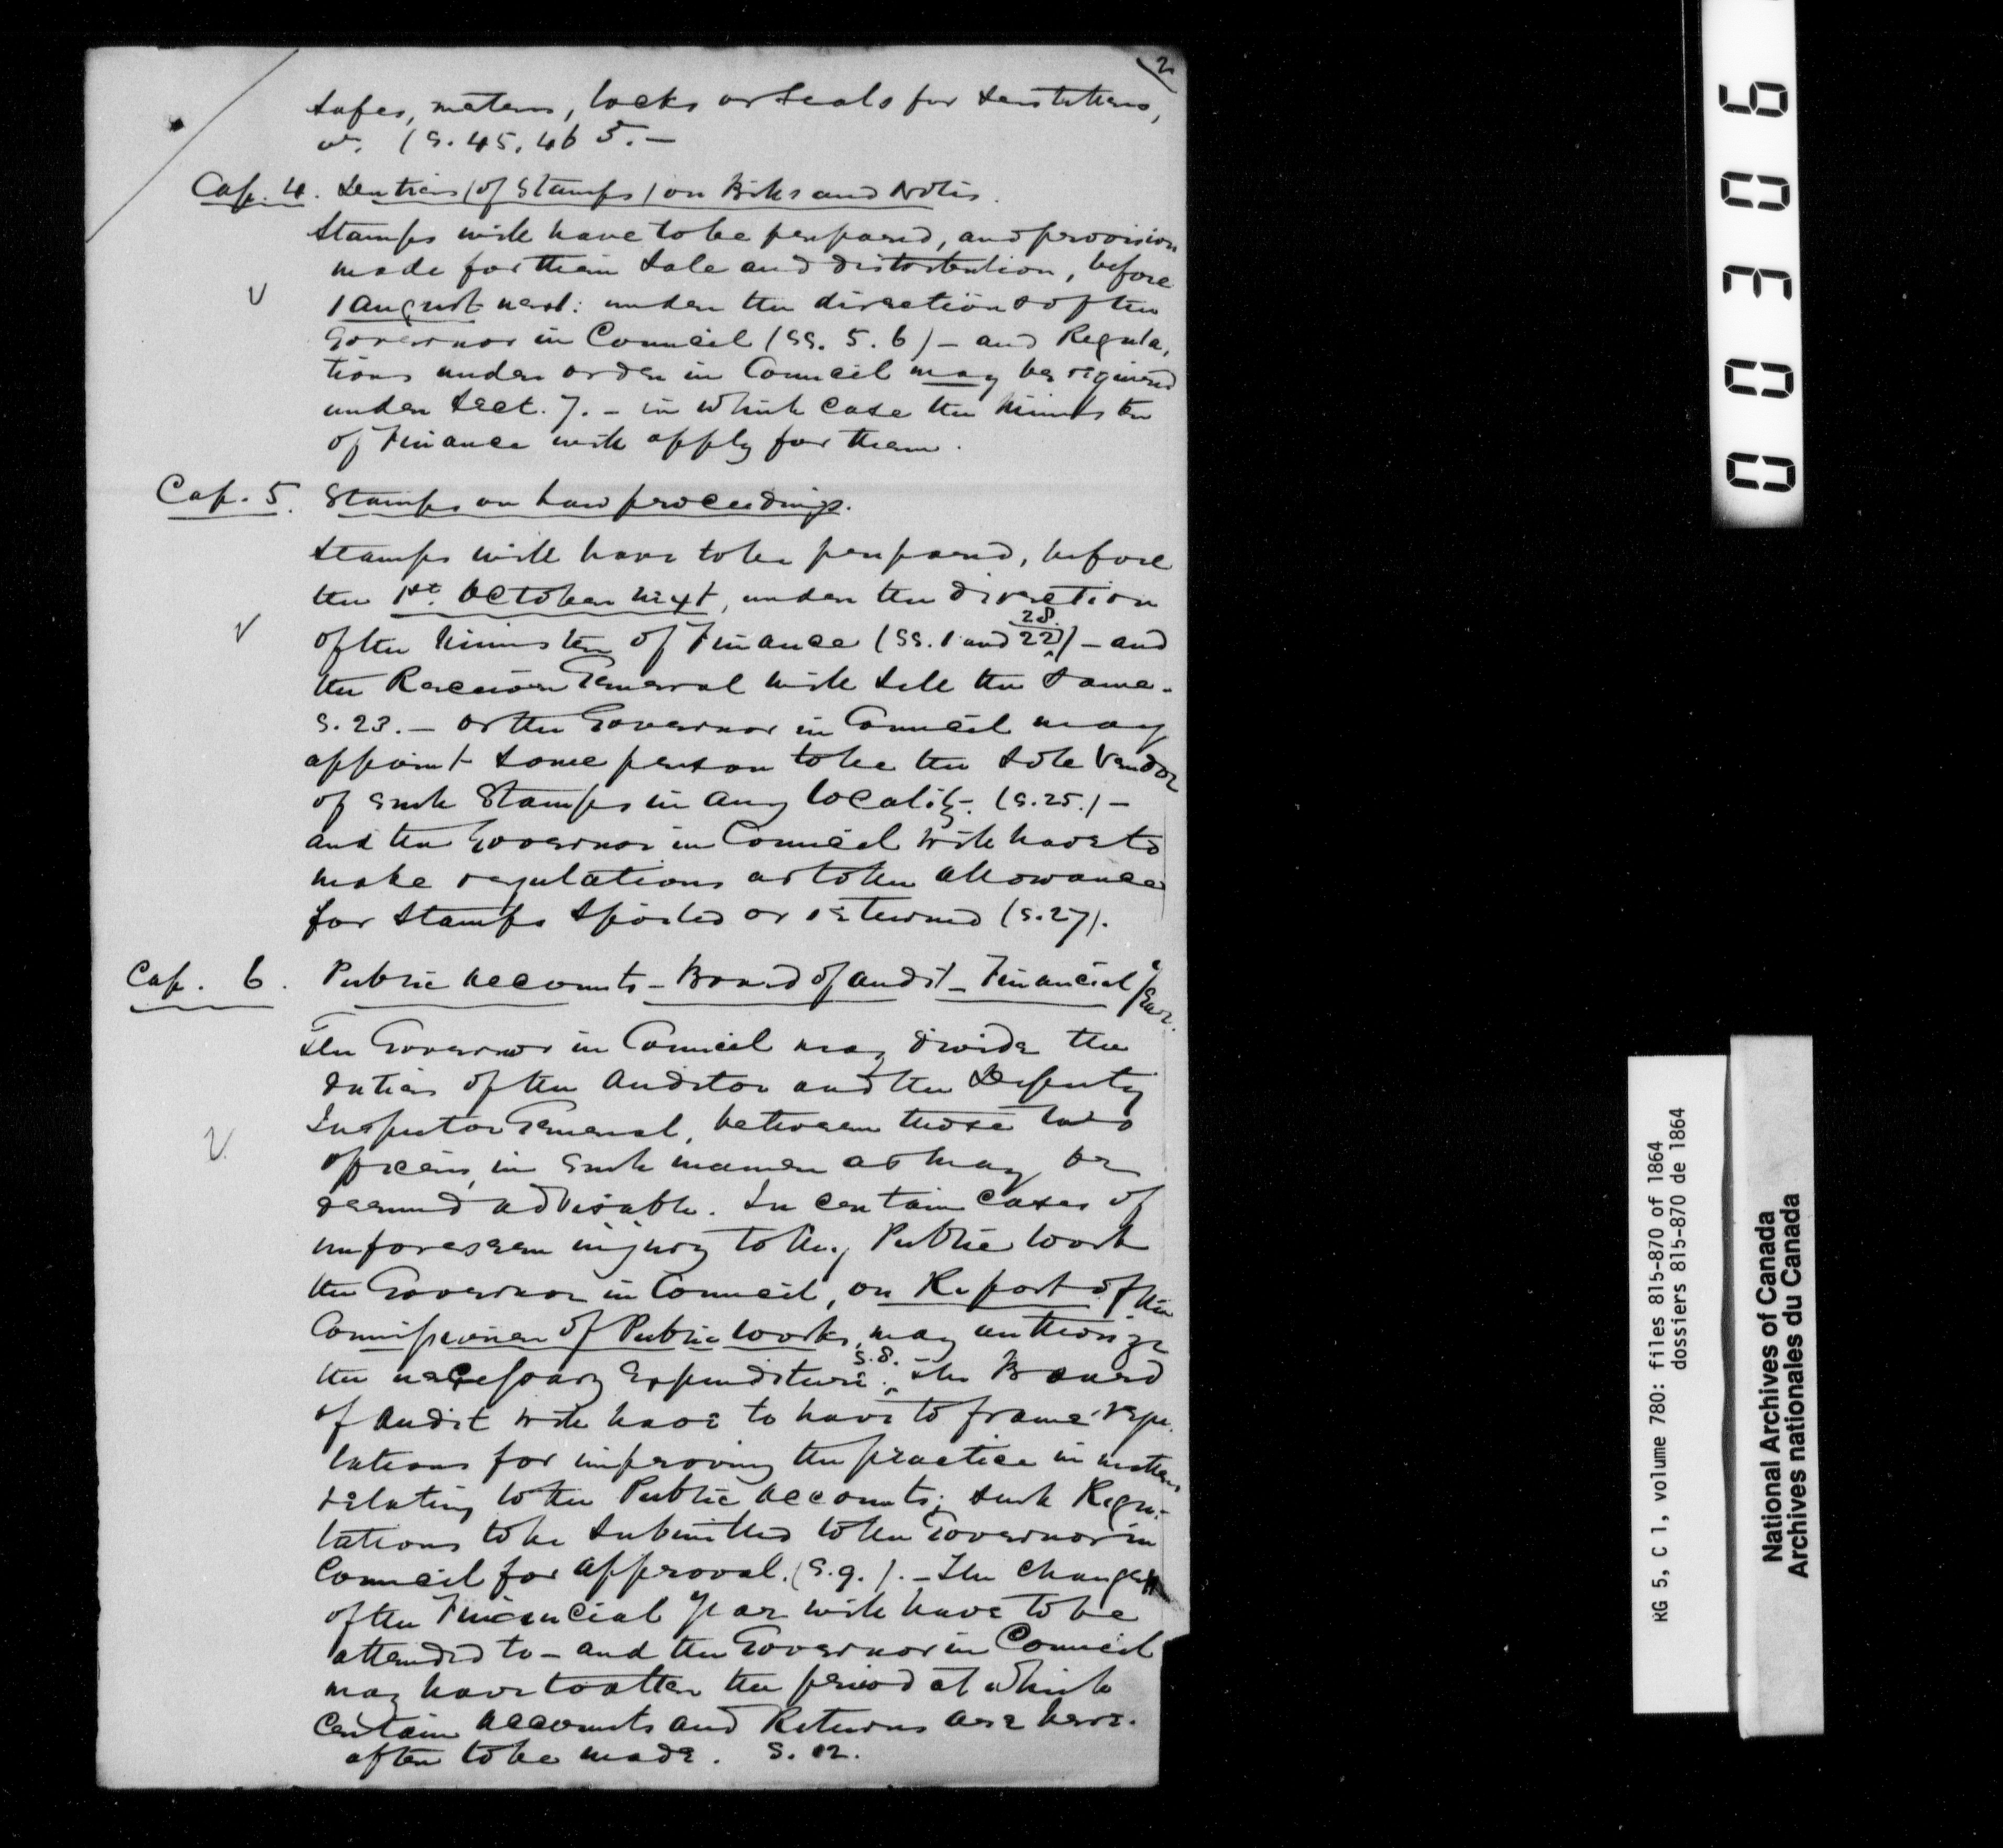 2
safes, meters, locks or seals for distilleries,
&c. (S. 45, 46 5. —
Cap. 4. Duties (of Stamps) on Bills and Notes.
Stamps will have to be prepared, and provision
made for their sale and distribution, before
1 August next: under the directions of the
Governor in Council (SS. 5. 6) — and Regula,
tions under order in Council may be required
under Sect. 7. — in which case the Minister
of Finance will apply for them.
Cap. 5. Stamps on Law proceedings.
Stamps will have to be prepared, before
the 1st. October next, under the direction
28.
of the Minister of Finance (SS. 1 and 22) — and
the Receiver General will sell the same.
S. 23. — or the Governor in Council may
appoint some person to be the sole Vendor
of such Stamps in any locality. (S. 25.) —
and the Governor in Council will have to
make regulations as to the allowance
for stamps spoiled or returned (S. 27).
Cap. 6. Public Accounts — Board of Audit — Financial Year.
The Governor in Council may divide the
duties of the Auditor and the Deputy
Inspector General, between those two
officers, in such manner as may be
deemed advisable. In certain cases of
unforeseen injury to any Public Work
the Governor in Council, on Report of the
Commissioner of Public Works, may authorize
S. 8.
the necessary Expenditure. The Board
of Audit will have to have to frame regu.
lations for improving the practice in matters
relating to the Public Accounts; such Regu-
lations to be submitted to the Governor in
Council for approval. (S. 9.). — The change
of the Financial Year will have to be
attended to — and the Governor in Council
may have to alter the period at which
certain Accounts and Returns are here.
after to be made. S. 12.
00306
RG 5, C 1, volume 780: files 815-870 of 1864
dossiers 815-870 de 1864
National Archives of Canada
Archives nationales du Canada